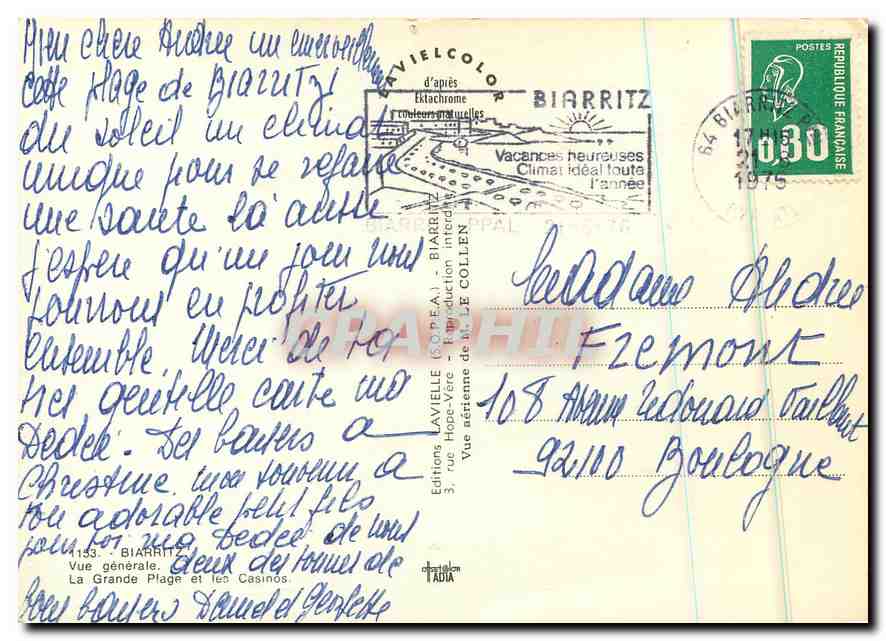 Bien chere Andree un merveilleux
cette plage de BIARRITZ!
du soleil un climat
unique pour se refaire
une sante là aussi
j'espere qu'un jour nous
pourrons en profiter
ensemble. Merci de ta
tres gentille carte ma
Dedee. Des baisers a
Christine mon souvenir a
ton adorable petit fils
pour toi ma Dedee de nous
deux des tonnes de
bons baisers Daniel et Georgette
1153. - BIARRITZ
Vue générale.
La Grande Plage et les Casinos.
LAVIELCOLOR
d'après
Ektachrome
couleurs naturelles
BIARRITZ
Vacances heureuses
Climat idéal toute
l'année
BIARRITZ PPAL
Editions LAVIELLE (S.O.P.E.A.) - BIARRITZ
3, rue Hope-Vère - Reproduction interdite
Vue aérienne de M. LE COLLEN
offset@lon
TADIA
64 BIARRITZ
17H
21 -8
1975
POSTES
REPUBLIQUE FRANÇAISE
0,80
CPARHIL
Madame Andree
Fremont
108 Avenue Edouard Vaillant
92100 Boulogne